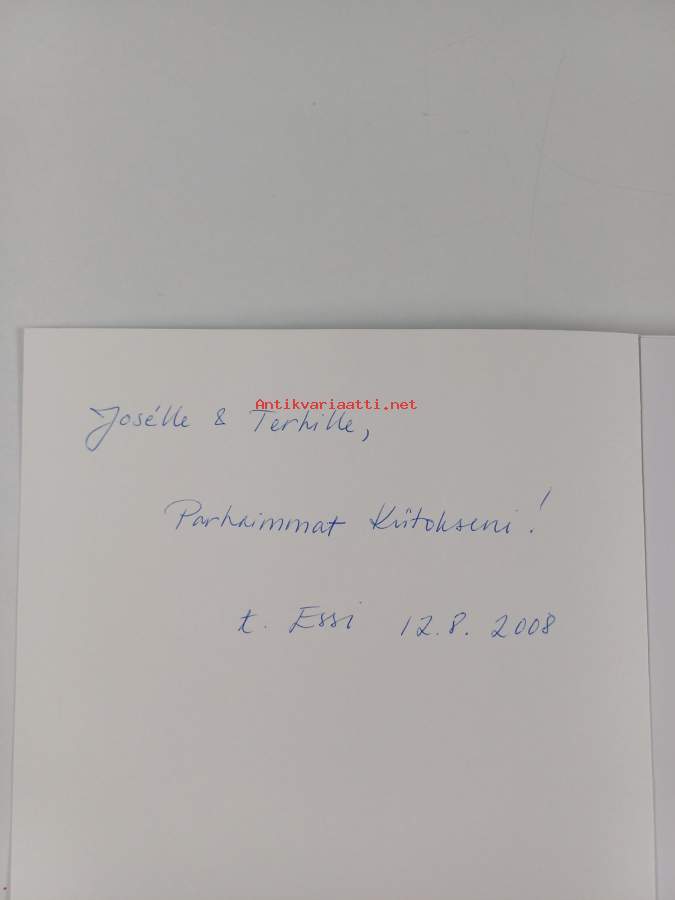 Antikvariaatti.net
Josélle & Terhille,
Parhaimmat Kiitokseni!
t. Essi 12.8. 2008